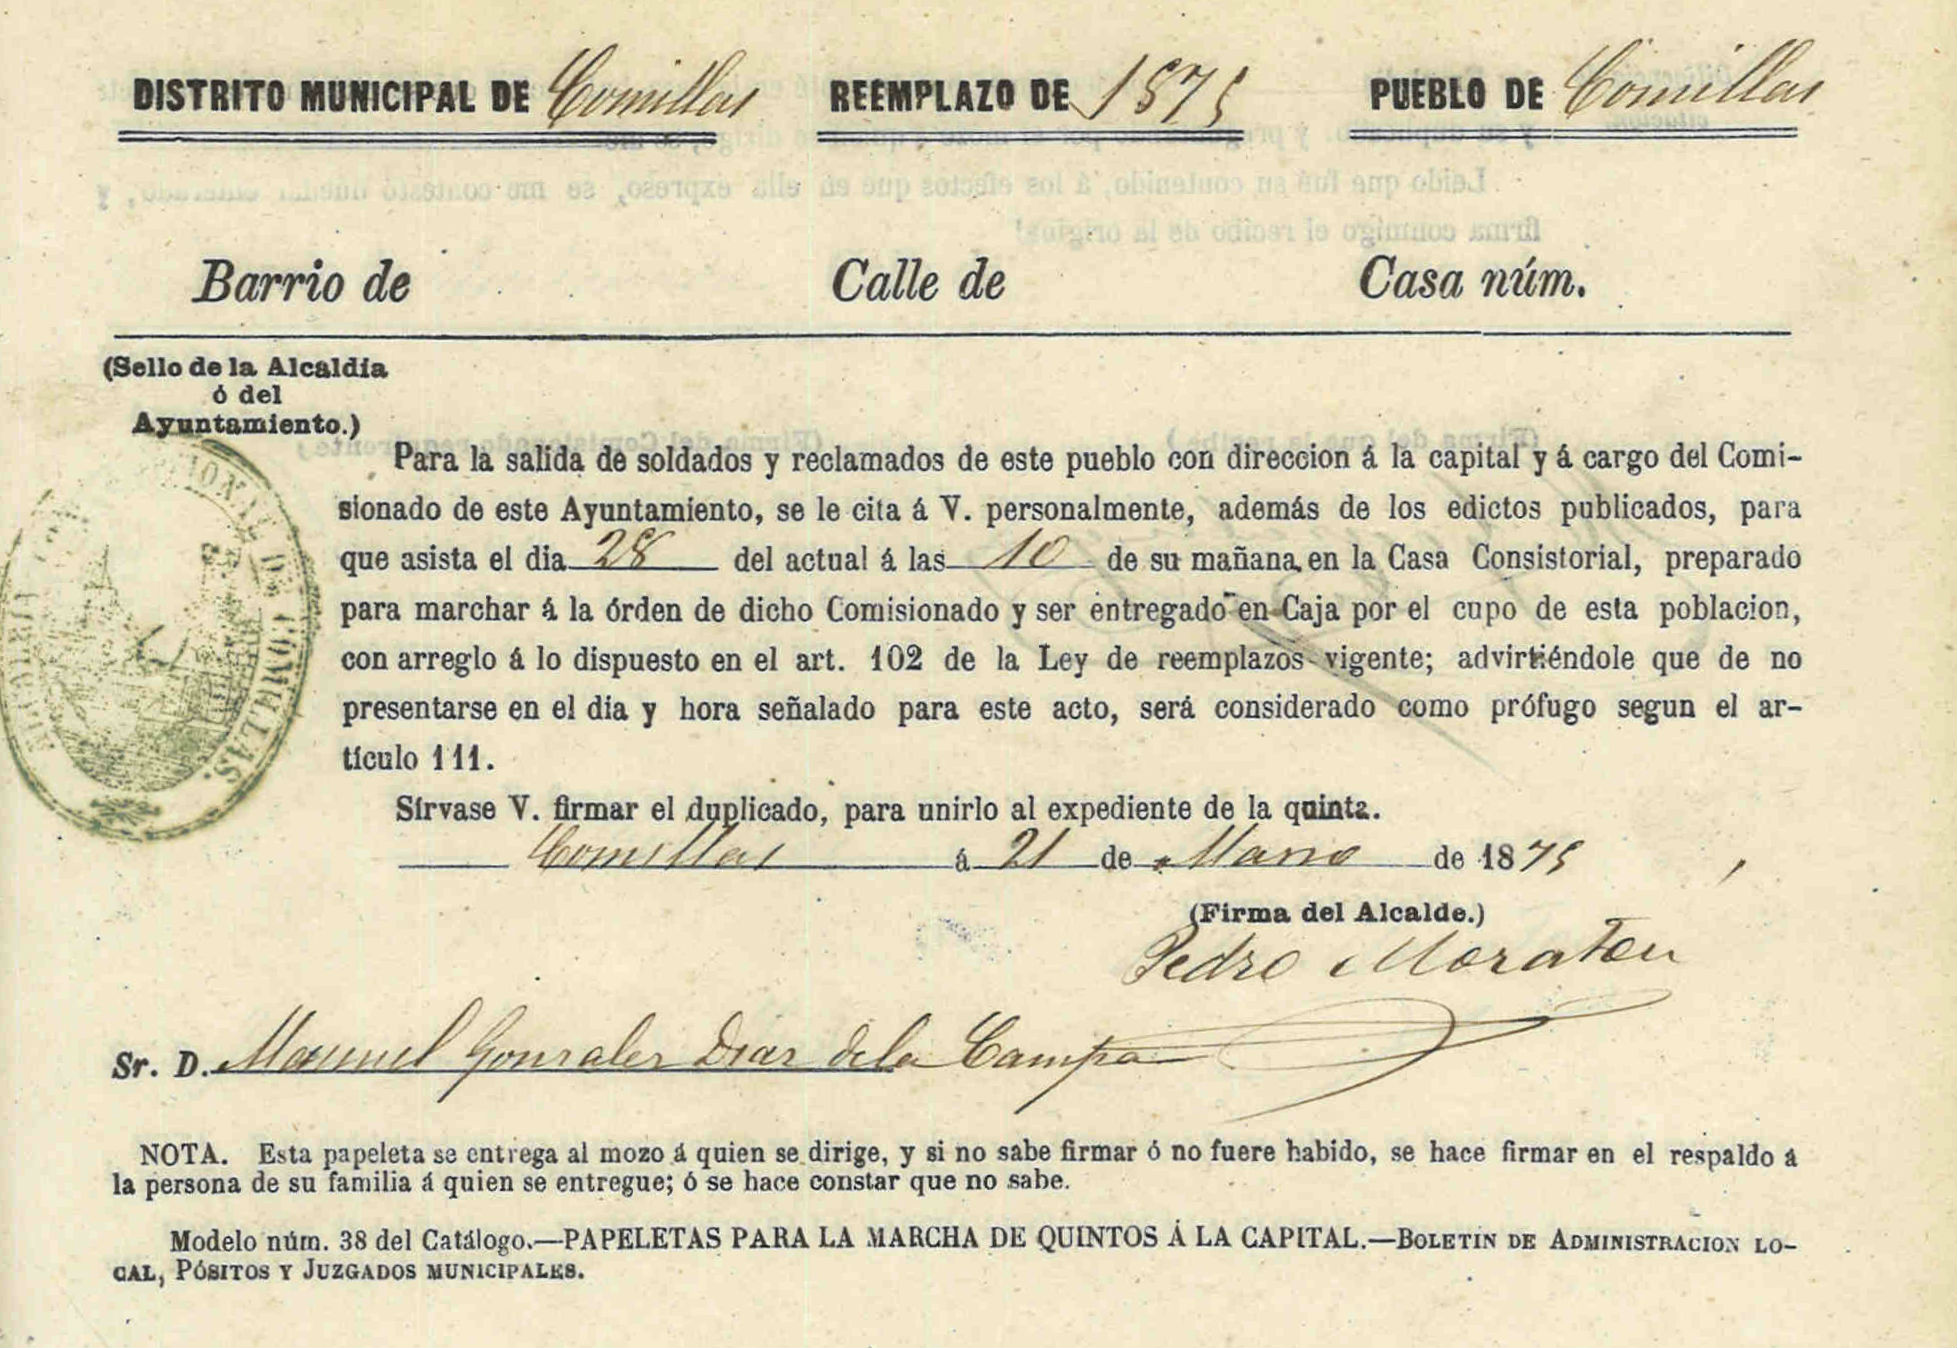 DISTRITO MUNICIPAL DE Comillas REEMPLAZO DE 1875 PUEBLO DE Comillas
Barrio de Calle de Casa núm.
(Sello de la Alcaldía
ó del
Ayuntamiento.)
Para la salida de soldados y reclamados de este pueblo con direccion á la capital y á cargo del Comi-
sionado de este Ayuntamiento, se le cita á V. personalmente, además de los edictos publicados, para
que asista el dia 28 del actual á las 10 de su mañana, en la Casa Consistorial, preparado
para marchar á la órden de dicho Comisionado y ser entregado en Caja por el cupo de esta poblacion,
con arreglo á lo dispuesto en el art. 102 de la Ley de reemplazos vigente; advirtiéndole que de no
presentarse en el dia y hora señalado para este acto, será considerado como prófugo segun el ar-
tículo 111.
Sírvase V. firmar el duplicado, para unirlo al expediente de la quinta.
Comillas á 21 de Marzo de 1875
(Firma del Alcalde.)
Pedro Moraton
Sr. D. Manuel Gonzalez Diaz de la Campa
NOTA. Esta papeleta se entrega al mozo á quien se dirige, y si no sabe firmar ó no fuere habido, se hace firmar en el respaldo á
la persona de su familia á quien se entregue; ó se hace constar que no sabe.
Modelo núm. 38 del Catálogo.—PAPELETAS PARA LA MARCHA DE QUINTOS Á LA CAPITAL.—BOLETIN DE ADMINISTRACION LO-
CAL, PÓSITOS Y JUZGADOS MUNICIPALES.
DE COMILLAS.